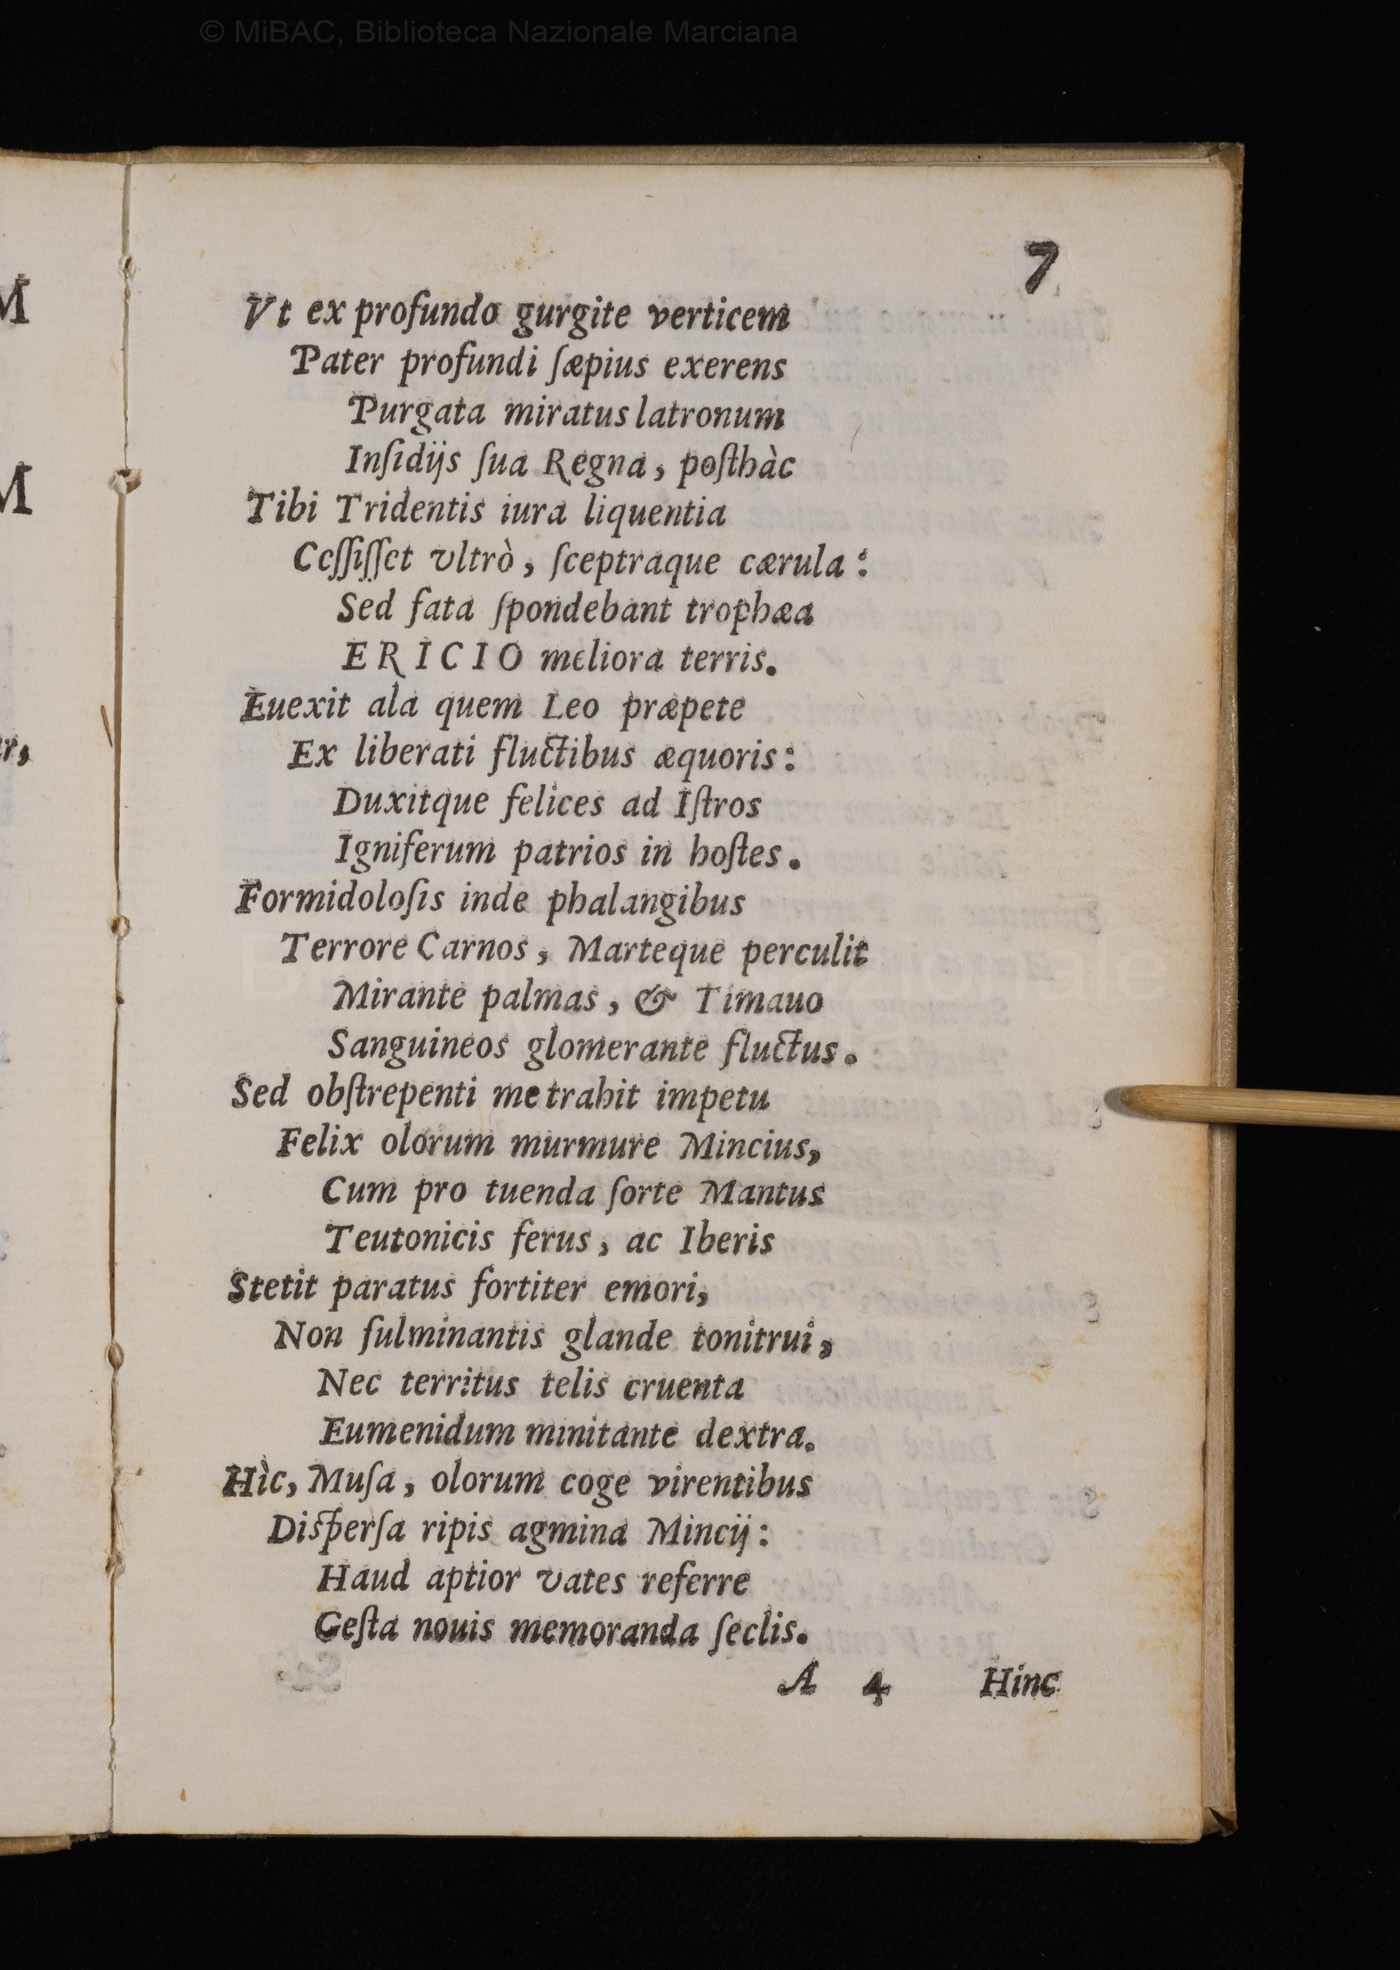 © MiBAC, Biblioteca Nazionale Marciana
7
Vt ex profundo gurgite verticem
Pater profundi ſæpius exerens
Purgata miratus latronum
Inſidijs ſua Regna, poſthàc
Tibi Tridentis iura liquentia
Ceſſiſſet vltrò, ſceptraque cærula:
Sed fata ſpondebant trophæa
ERICIO meliora terris.
Euexit ala quem Leo præpete
Ex liberati fluctibus æquoris:
Duxitque felices ad Iſtros
Igniferum patrios in hoſtes.
Formidoloſis inde phalangibus
Terrore Carnos, Marteque perculit
Mirante palmas, & Timauo
Sanguineos glomerante fluctus.
Sed obſtrepenti me trahit impetu
Felix olorum murmure Mincius,
Cum pro tuenda ſorte Mantus
Teutonicis ferus, ac Iberis
Stetit paratus fortiter emori,
Non fulminantis glande tonitrui,
Nec territus telis cruenta
Eumenidum minitante dextra.
Hìc, Muſa, olorum coge virentibus
Diſperſa ripis agmina Mincij:
Haud aptior vates referre
Geſta nouis memoranda ſeclis.
A 4 Hinc
M
M
r,